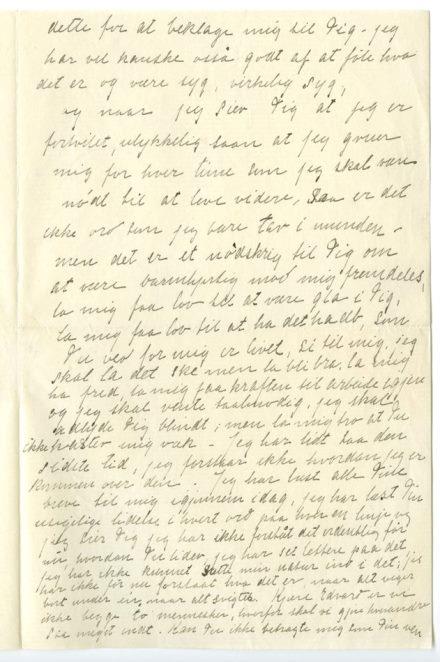 dette for at beklage mig til Dig - jeg
har vel kanske også godt af at föle hva
det er og være syg, virkelig syg,
og naar jeg sier Dig at jeg er
fortvilet, ulykkelig saan at jeg gruer
mig for hver time som jeg skal være
nödt til at leve videre, saa er det
ikke ord som jeg bare tar i munden -
men det er et nödskrig til Dig om
at være barmhjertig mod mig fremdeles,
la mig faa lov til at være gla i Dig,
la mig faa lov til at ha det haab, som
Du ved for mig er livet, si til mig, jeg
skal la det ske men la bli bra, la mig
ha fred, la mig faa kraften til at arbeide igjen
og jeg skal vente taalmodig, jeg skal
adlyde Dig blindt; men la mig tro at Du
ikke kaster mig væk - Jeg har lidt saa den
sidste tid, jeg forstaar ikke hvordan jeg er
kommen over den. Jeg har læst alle Dine
breve til mig igjennem idag, jeg har læst Din
usigelige lidelse i hvert ord paa hver en linje og
jeg sier Dig jeg har ikke forstaat det ordentlig för
nu, hvordan Du lider, jeg har set lettere paa det
jeg har ikke kunnet sætte min natur ind i det; jeg
har ikke för nu forstaat hva det er, naar alt viger
bort under én, naar alt svigter. Kjære Edvard er vi
ikke begge to mennesker, hvorfor skal vi gjøre hverandre
saa meget ondt. Kan Du ikke betragte mig som Din ven